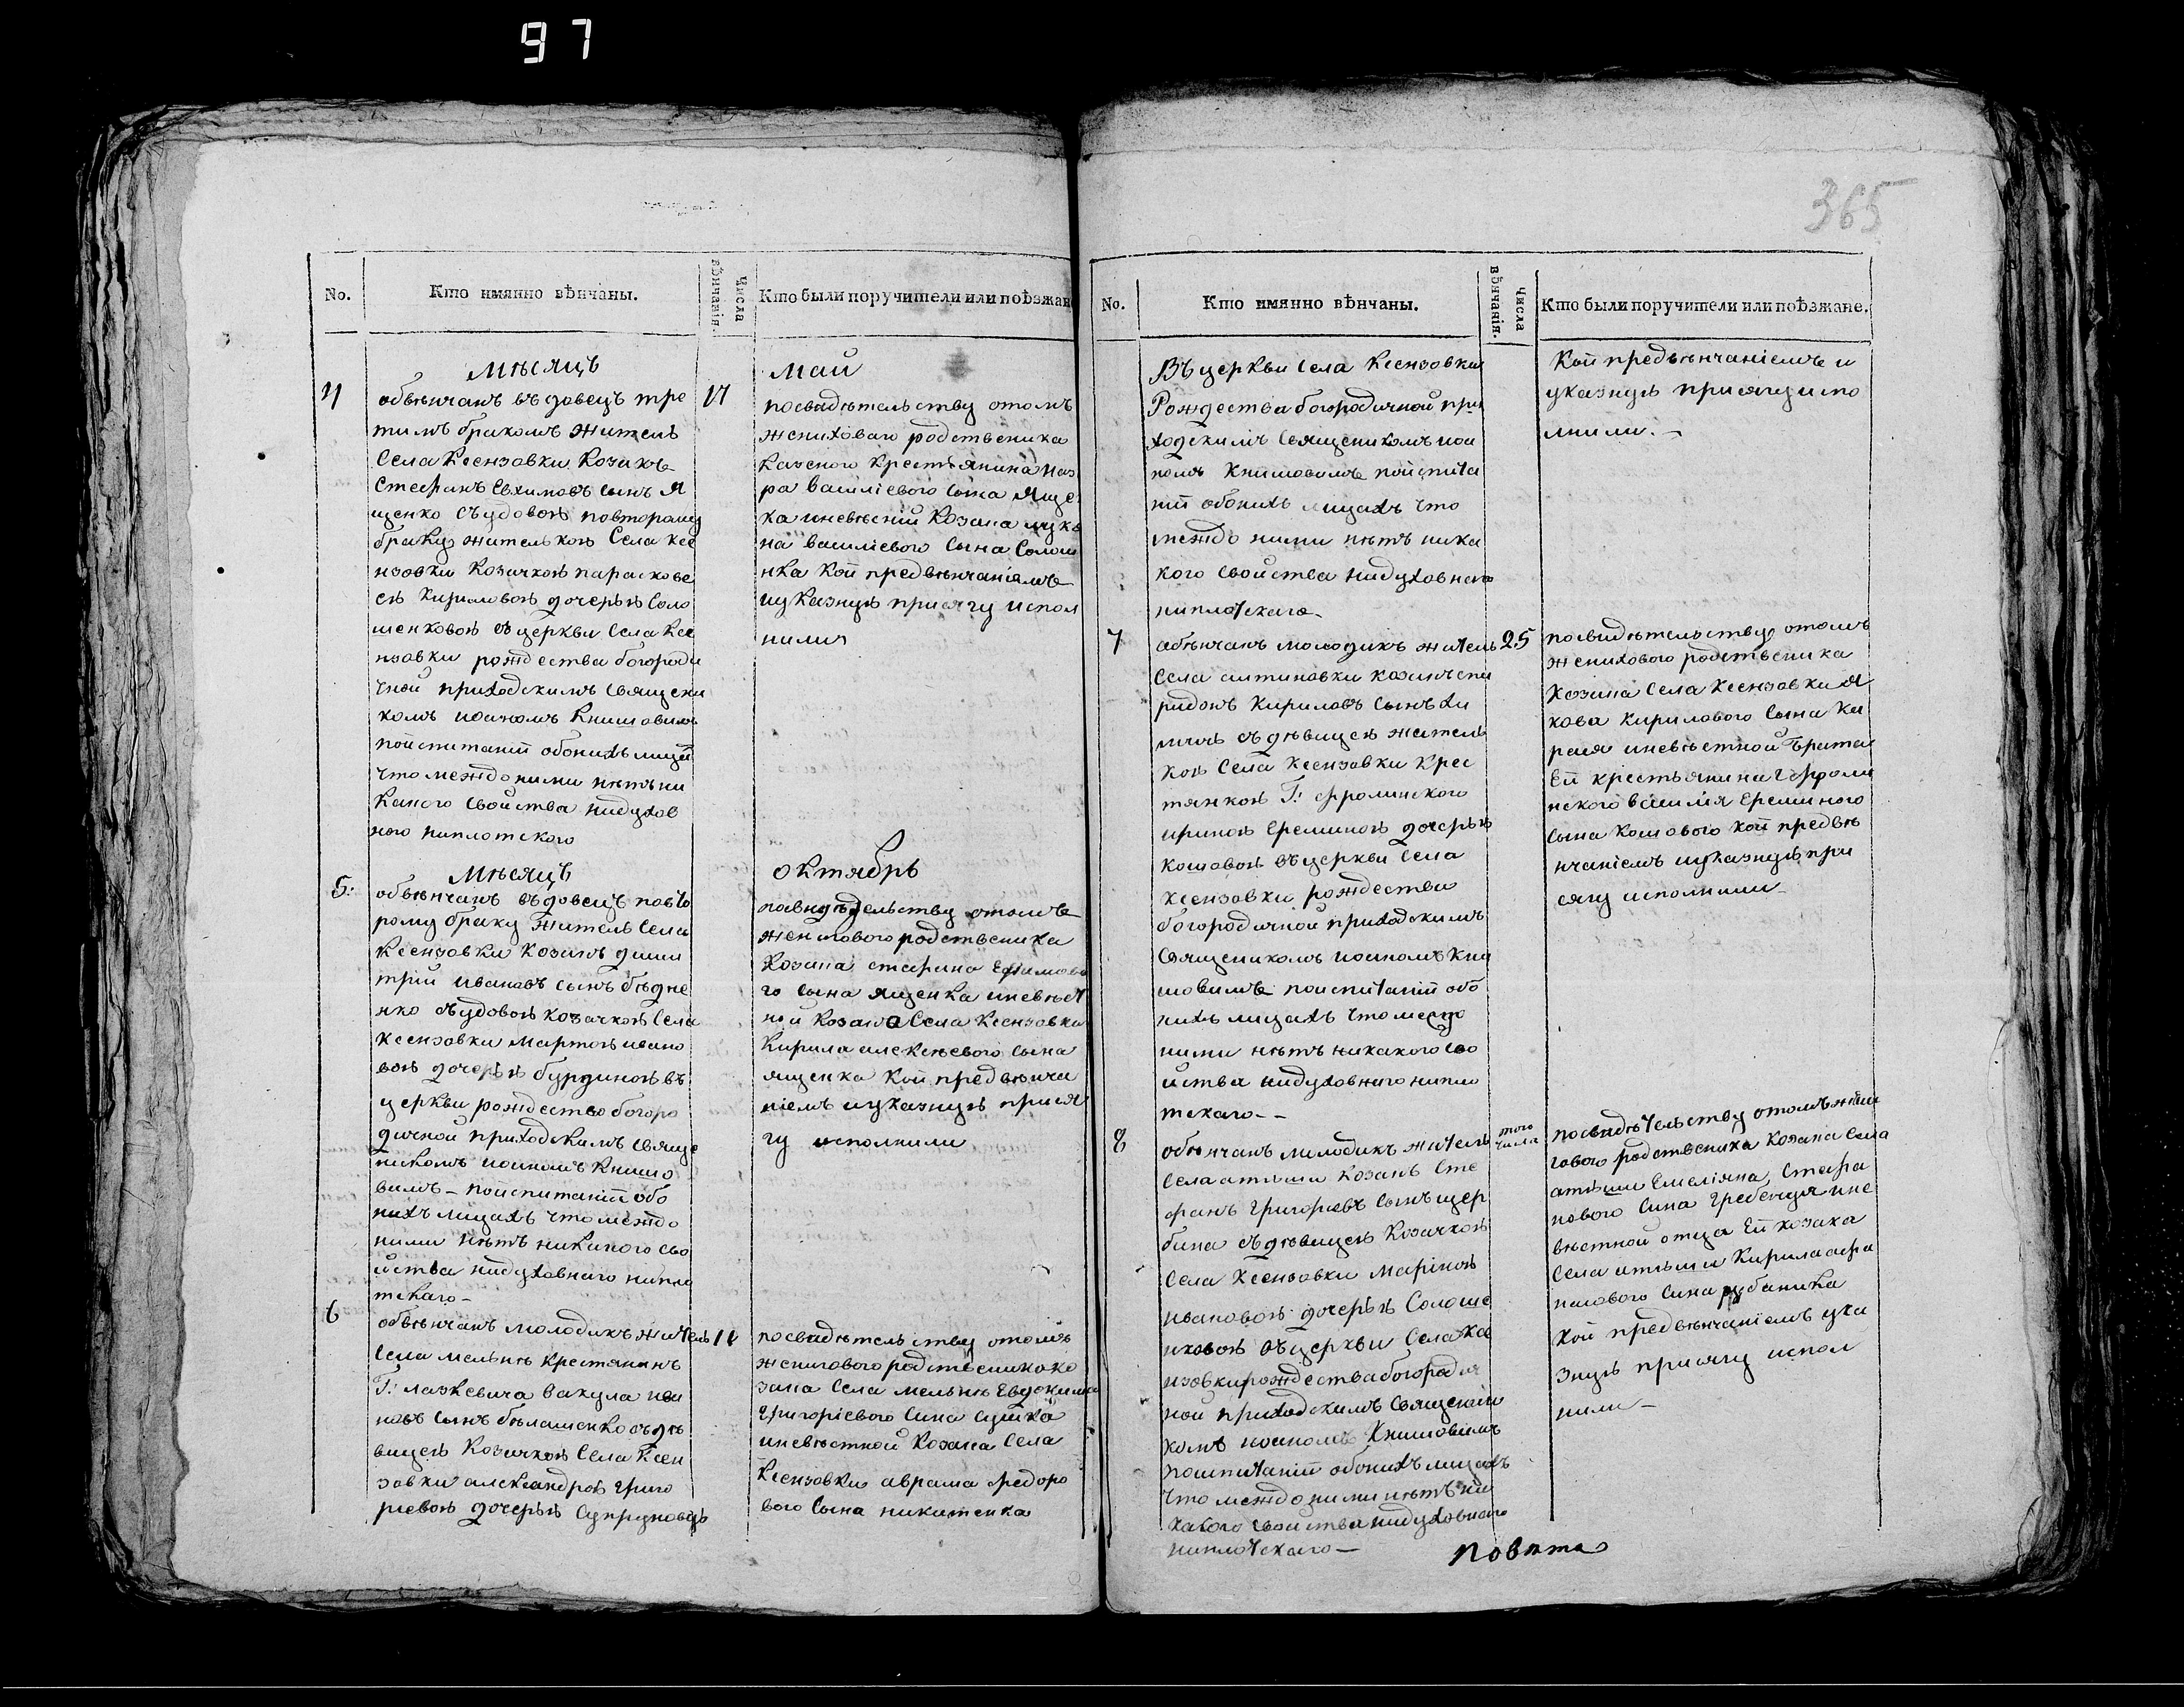 97
365
No.
Кто имянно вѣнчаны.
Числа вѣнчанія.
Кто были поручители или поѣзжан
Мѣсяцъ
4
обвѣнчанъ въдовецъ тре
тимъ бракомъ житель
Села Ксензовки Козакъ
Стефанъ Евхимовъ сынъ Я
щенко съудовою повторому
браку жителькою Села Ксе
нзовки Козачкою параскове
ею Кириловою дочерью Соло
шенковою въцеркви Села Ксе
нзовки рождества богороди
чной приходскимъ священи
комъ иоаномъ Книшовимъ
поиспитаніи обоихъ лицъ
что междо ними нѣтъ ни
какого свойства нидухов
ного ниплотского
17
май
посвидѣтельству отомъ
женихового родственика
казеного крестьянина наз
ра василіевого сына Яще
ка иневѣстій Козака лукъ
на василіевого сына Солош
нка кои предвѣнчаніемъ
иуказную присягу испол
нили
Мѣсяцъ
5.
обвѣнчанъ въдовецъ повто
рому браку житель села
Ксензовки козакъ дими
трій ивановъ сынъ бѣдне
нко съудовою козачкою Села
Ксензовки Мартою ивано
вою дочерью бурдиною въ
церкви рождество богоро
дичной приходскимъ свяще
никомъ иоаномъ Книшо
вимъ – поиспитаніи обо
ихъ лицахъ что междо
ними нѣтъ никакого сво
йства нидуховнаго нипло
тскаго –
октябрь
посвидѣдельству отомъ
женихового родственика
Козака стефана Ефимово
го сына ященка иневѣст
ной козака Села Ксензовки
Кирила алексѣевого сына
ященка кои предвѣнча
ніемъ иуказную прися
гу исполнили
6
обвѣнчанъ молодикъ житель
Села мельнѣ крестянинъ
Г: лазкевича вакула ива
новъ сынъ бѣлашенко съдѣ
вицею Козачкою Села Ксен
зовки александрою григо
риевою дочерью Супруновою
11
посвидѣтельству отомъ
женихового родственика ко
зака Села мельнѣ Евдокима
григоріевого сина сушка
иневѣстной Козака Села
Ксензовки аврама федоро
вого Сына никитенка
No.
Кто имянно вѣнчаны.
Числа вѣнчанія.
Кто были поручители или поѣзжане.
Въ церкви села Ксензовки
Рождества богородичной при
ходскимъ священикомъ иоа
номъ Книшовимъ поиспита
ніи обоихъ лицахъ что
междо ними нѣтъ ника
кого свойства нидуховнаго
ниплотскаго –
Кои предвѣнчаніемъ и
указную присягу испо
лнили. –
7
обвѣнчанъ молодикъ житель
Села алтиновки козакъ спи
ридонъ Кириловъ сынъ
съдѣвицею житель
кою Села Ксензовки Крес
тянкою Г: фролинского
ириною Ереминою дочерью
Кошовою въцеркви Села
Ксензовки рождества
богородичной приходскимъ
священикомъ иоаномъ Кни
шовимъ поиспитаніи обо
ихъ лицахъ что междо
ними нѣтъ никакого сво
йства нидуховнаго нипло
тскаго – –
25
посвидѣтельству отомъ
женихового родственика
козака Села Ксензовки Я
кова Кирилового Сына
иневѣстной брата
Еи крестьянина Г фроли
нского василія Ереминого
сына Кошового кои предвѣ
нчаніемъ иуказную при
сягу исполнили –
8
обвѣнчанъ молодикъ житель
Села Козакъ Сте
фанъ григоревъ сынъ щер
бина съдѣвицею Козачкою
Села Ксензовки Маріною
ивановою дочерью Солоше
нковою въцеркви Села Ксе
нзовки рождества богороди
ной приходскимъ Священни
комъ иоаномъ Книшовимъ
поиспитаніи обоихъ лицахъ
что междо ними нѣтъ ни
какого свойства нидуховнаго
ниплотскаго –
того числа
посвидѣтельству отомъ жени
хового родственика козака Села
Емеліяна Стефа
нового сина гребенця ине
вѣстной отца Еи козака
Села Кирила афа
насового сина рубаника
кои предвѣнчаніемъ ука
зную присягу испол
нили –